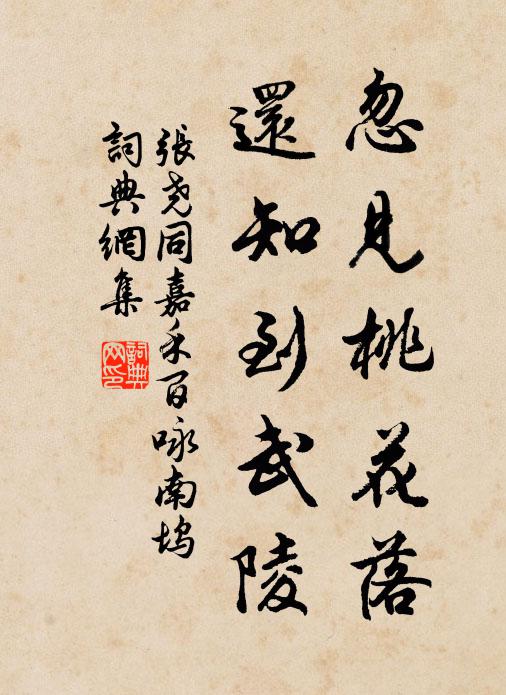 忽見桃花落
還知到武陵
張堯同嘉禾百咏南塢
詞典網集
詞典網印